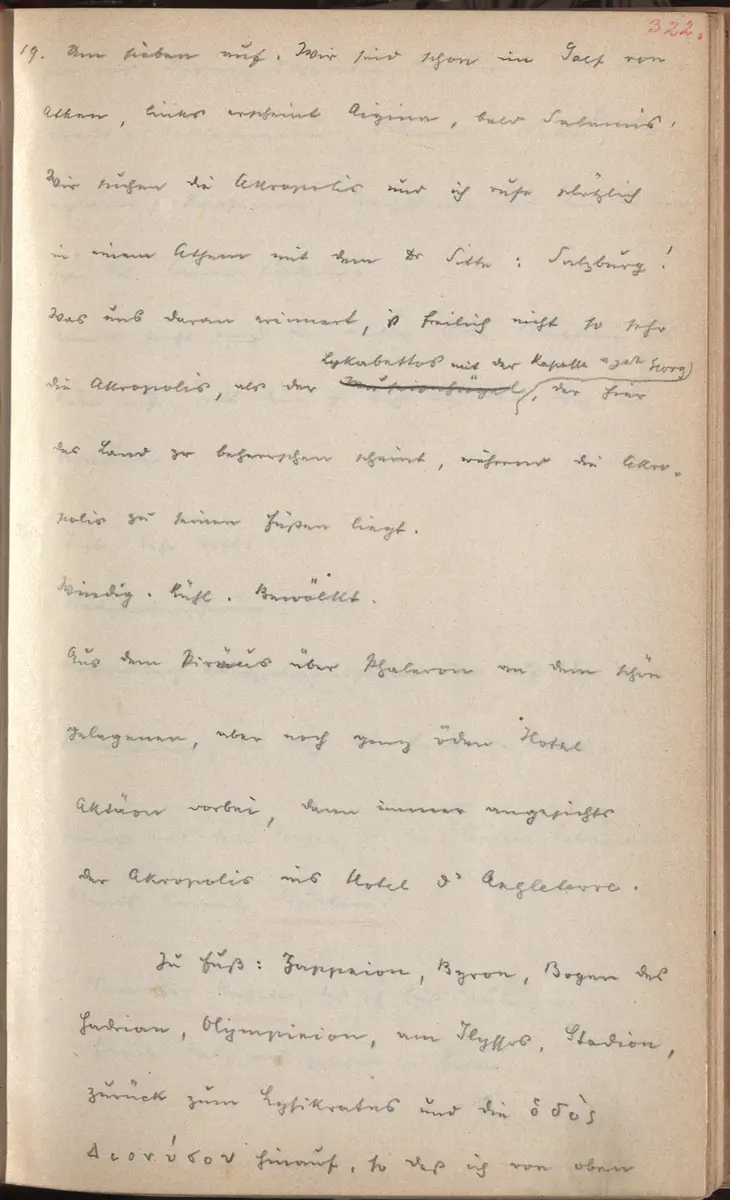 322.
19. Um sieben auf. Wir sind schon im Golf von
Athen, links erscheint Aigina, bald Salamis.
Wir suchen die Akropolis und ich rufe plötzlich
in einem Athem mit dem Dr Sitte: Salzburg!
Was uns daran erinnert, is freilich nicht so sehr
Lykabettos mit der Kapelle Georg)
die Akropolis, als der Museionhügel, der hier
das Land zu beherrschen scheint, während die Akro-
polis zu seinen Füßen liegt.
Windig. Kühl. Bewölkt.
Aus dem Piräus über Phaleron an dem schön
gelegenen, aber noch ganz öden Hotel
Aktäon vorbei, dann immer angesichts
der Akropolis ins Hotel d'Angleterre.
Zu Fuß: Zappeion, Byron, Bogen des
Hadrian, Olympieion, am Ilyssos, Stadion,
zurück zum Lysikrates und die ὁδὸς
Διονύσου hinauf, so daß ich von oben